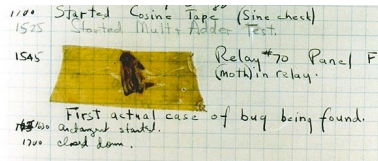 1100 Started Cosine Tape (Sine check)
1525 Started Mult+Adder Test.
1545 Relay #70 Panel F
(moth) in relay.
First actual case of bug being found.
1630 antangent started.
1700 closed down.